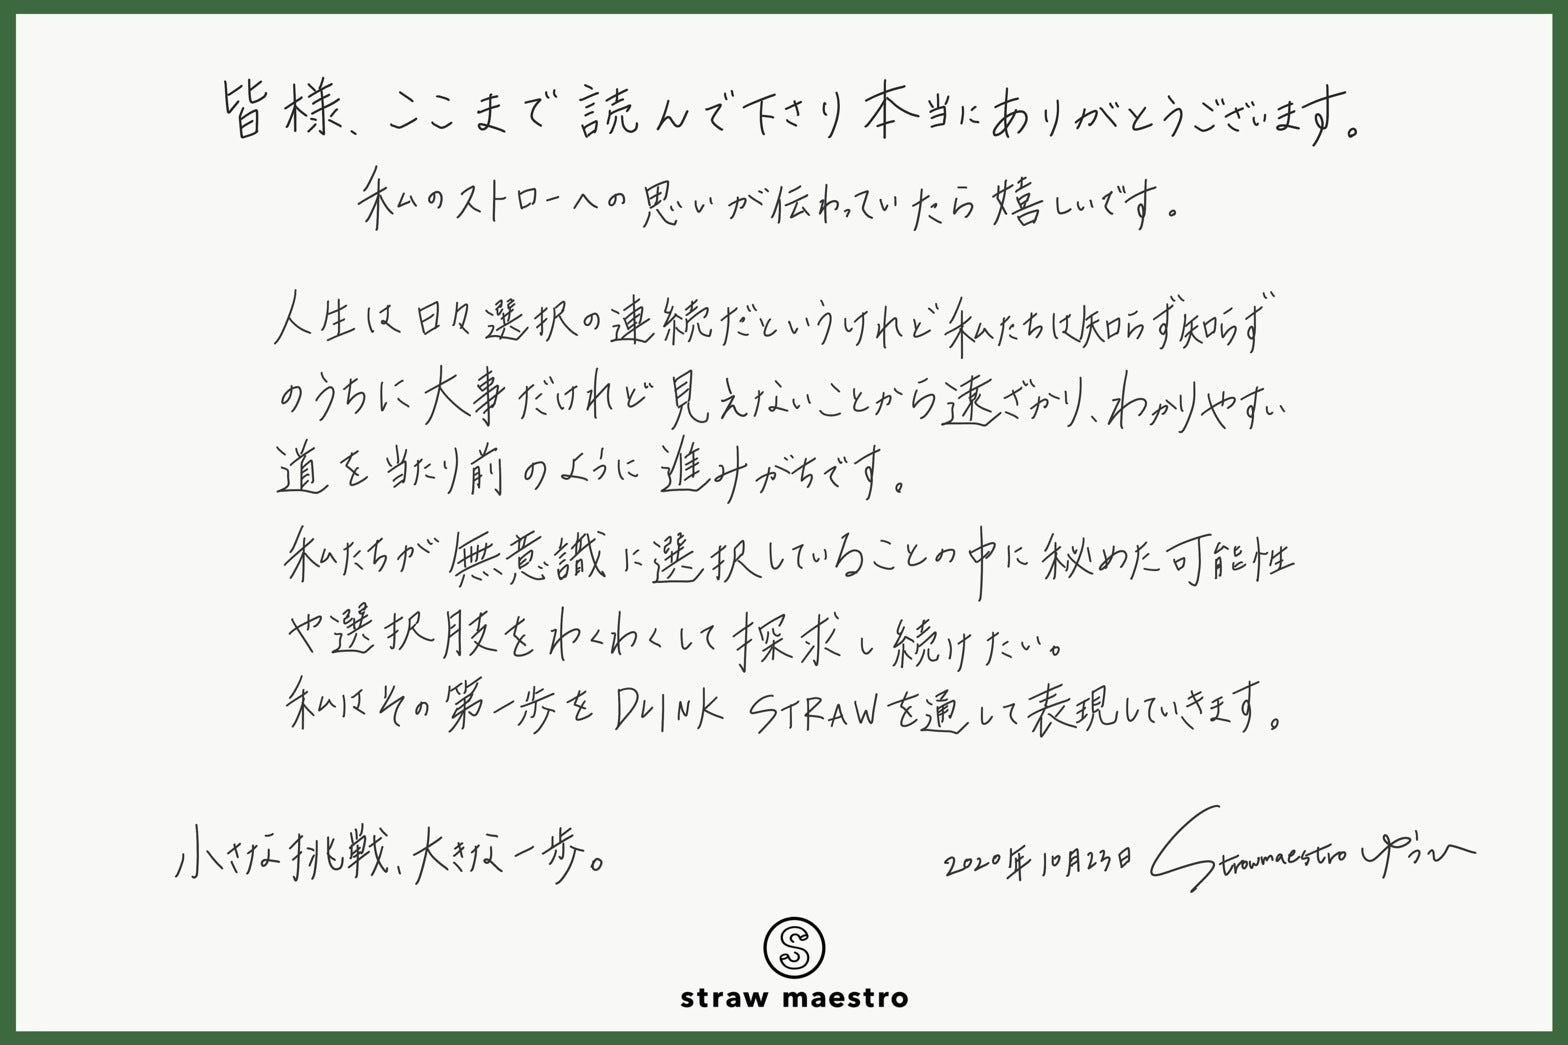 皆様、ここまで読んで下さり本当にありがとうございます。
私のストローへの思いが伝わっていたら嬉しいです。
人生は日々選択の連続だというけれど私たちは知らず知らず
のうちに大事だけれど見えないことから遠ざかり、わかりやすい
道を当たり前のように進みがちです。
私たちが無意識に選択していることの中に秘めた可能性
や選択肢をわくわくして探求し続けたい。
私はその第一歩をDLINK STRAWを通して表現していきます。
小さな挑戦、大きな一歩。
2020年10月23日 Strawmaestro ゆうひ
S
straw maestro